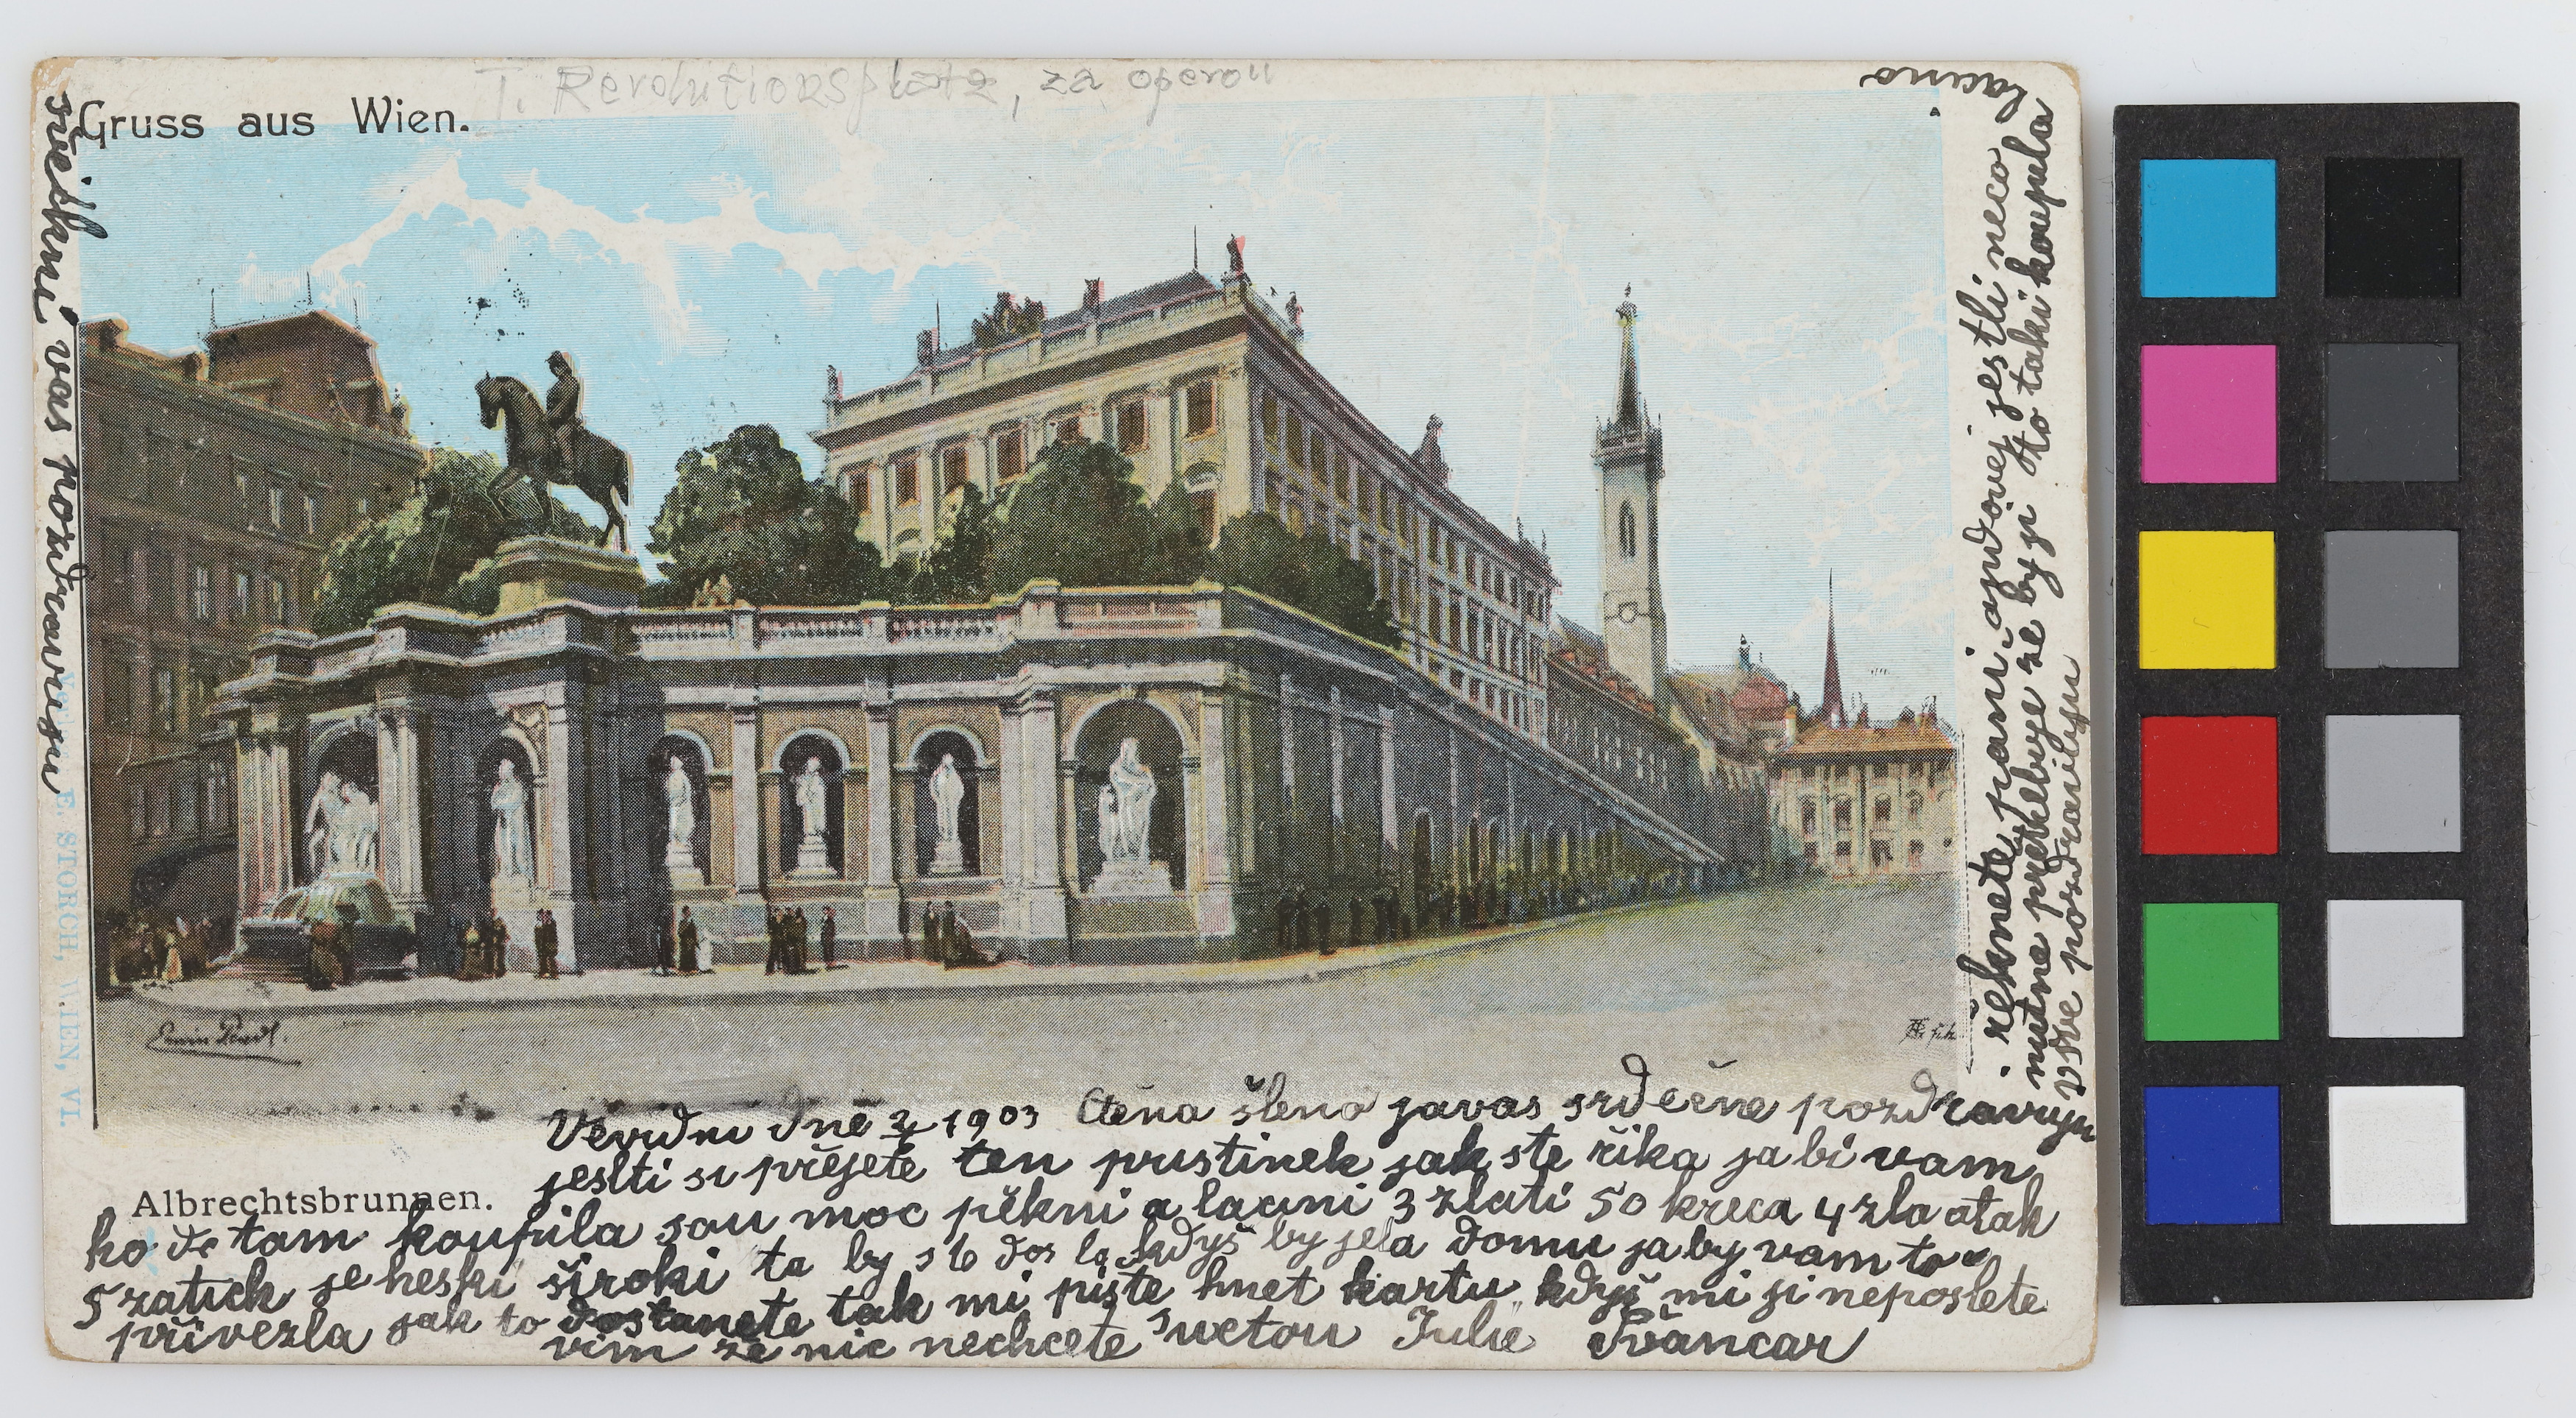 T. Revolutionsplatz, za operou
Gruss aus Wien.
E. STORCH, WIEN, VI.
Albrechtsbrunnen.
Vevidni dne 2 1903 Ctěna sleno javas srdečne pozdravuju
jestli si přejete ten prstinek jak ste řika ja bi vam
ho de tam koupila sou moc pěkni a lacini 3 zlati 50 kreca 4 zla atak
5 zatick je heski široki ta by sto dos la kdyš by jela domu ja by vam to
přivezla jak to dostanete tak mi piste hnet kartu kdyš mi ji neposlete
vim že nic nechcete suctou Julie Švancar
řeknete pani ajndovej jestli neco
nutne přetřebuje že by ji to taki koupila
lacino
vše pozdravuju
všickni vas pozdravuju